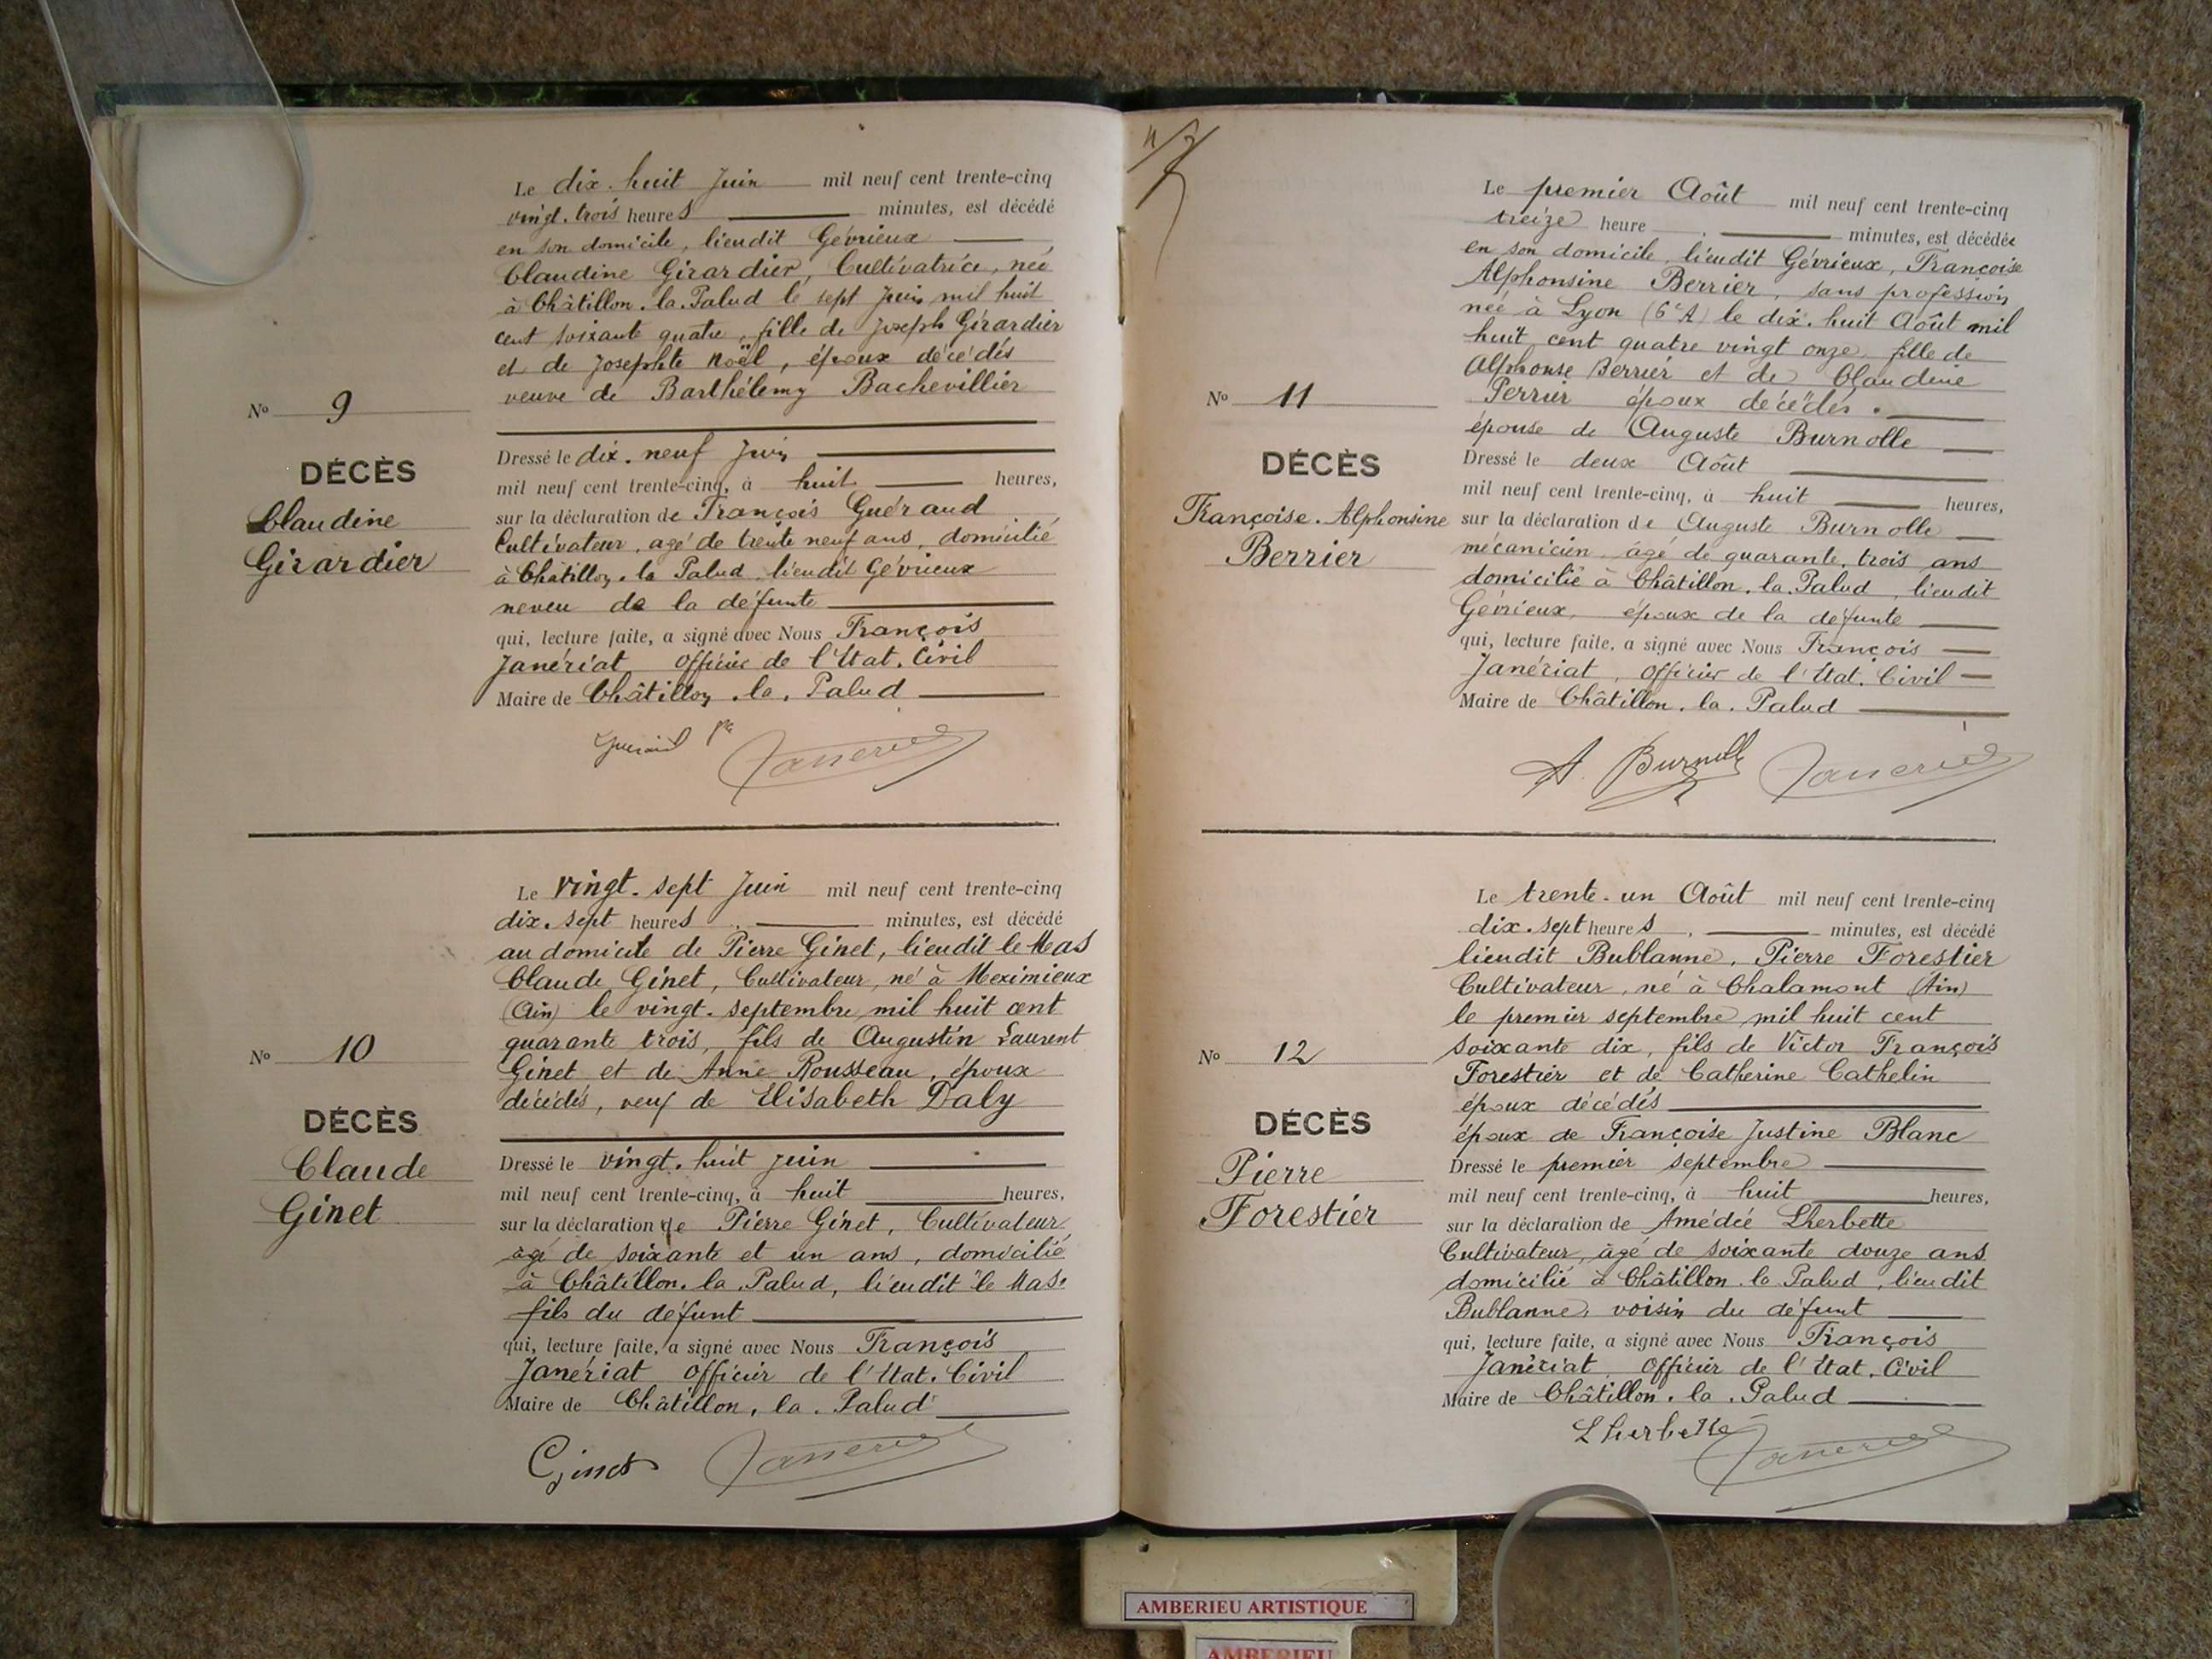 Le dix. huit Juin mil neuf cent trente-cinq
vingt. trois heures minutes, est décédé
en son domicile, lieudit Gévrieux
Claudine Girardier, Cultivatrice, née
à Châtillon. la. Palud le sept Juin mil huit
cent soixante quatre, fille de Joseph Girardier
et de Josephte Noël, époux décédés
veuve de Barthélemy Bachevillier
Nº 9
DÉCÈS
Claudine
Girardier
Dressé le dix. neuf Juin
mil neuf cent trente-cinq, à huit heures,
sur la déclaration de François Guéraud
Cultivateur, agé de trente neuf ans, domicilié
à Châtillon. la Palud, lieudit Gévrieux
neveu de la défunte
qui, lecture faite, a signé avec Nous François
Janériat, Officier de l'Etat. Civil
Maire de Châtillon. la. Palud
Le vingt. sept Juin mil neuf cent trente-cinq
dix. sept heures minutes, est décédé
au domicile de Pierre Ginet, lieudit le Mas
Claude Ginet, Cultivateur, né à Meximieux
(Ain) le vingt. septembre mil huit cent
quarante trois, fils de Augustin Laurent
Ginet et de Anne Rousseau, époux
décédés, veuf de Elisabeth Daly
Nº 10
DÉCÈS
Claude
Ginet
Dressé le vingt. huit juin
mil neuf cent trente-cinq, à huit heures,
sur la déclaration de Pierre Ginet, Cultivateur,
âgé de soixante et un ans, domicilié
à Châtillon. la. Palud, lieudit "le Mas"
fils du défunt
qui, lecture faite, a signé avec Nous François
Janériat Officier de l'Etat. Civil
Maire de Châtillon. la. Palud
Ginet
Le premier Août mil neuf cent trente-cinq
treize heure minutes, est décédée
en son domicile, lieudit Gévrieux, Françoise
Alphonsine Berrier, sans profession
née à Lyon (6e A) le dix. huit Août mil
huit cent quatre vingt onze, fille de
Alphonse Berrier et de Claudine
Perrier époux décédés.
épouse de Auguste Burnolle
Nº 11
DÉCÈS
Françoise. Alphonsine
Berrier
Dressé le deux Août
mil neuf cent trente-cinq, à huit heures,
sur la déclaration de Auguste Burnolle
mécanicien, âgé de quarante. trois ans
domicilié à Châtillon. la. Palud, lieudit
Gévrieux, époux de la défunte
qui, lecture faite, a signé avec Nous François
Janériat, Officier de l'Etat. Civil
Maire de Châtillon. la. Palud
A Burnolle
Le trente. un Août mil neuf cent trente-cinq
dix. sept heures minutes, est décédé
lieudit Bublanne, Pierre Forestier
Cultivateur, né à Chalamont (Ain)
le premier septembre mil huit cent
soixante dix, fils de Victor François
Forestier et de Catherine Cathelin
époux décédés
époux de Françoise Justine Blanc
Nº 12
DÉCÈS
Pierre
Forestier
Dressé le premier septembre
mil neuf cent trente-cinq, à huit heures,
sur la déclaration de Amédée Lherbette
Cultivateur, âgé de soixante douze ans
domicilié à Châtillon. la Palud, lieudit
Bublanne, voisin du défunt
qui, lecture faite, a signé avec Nous François
Janériat Officier de l'Etat. Civil
Maire de Châtillon. la. Palud
Lherbette
AMBERIEU ARTISTIQUE
AMBERIEU